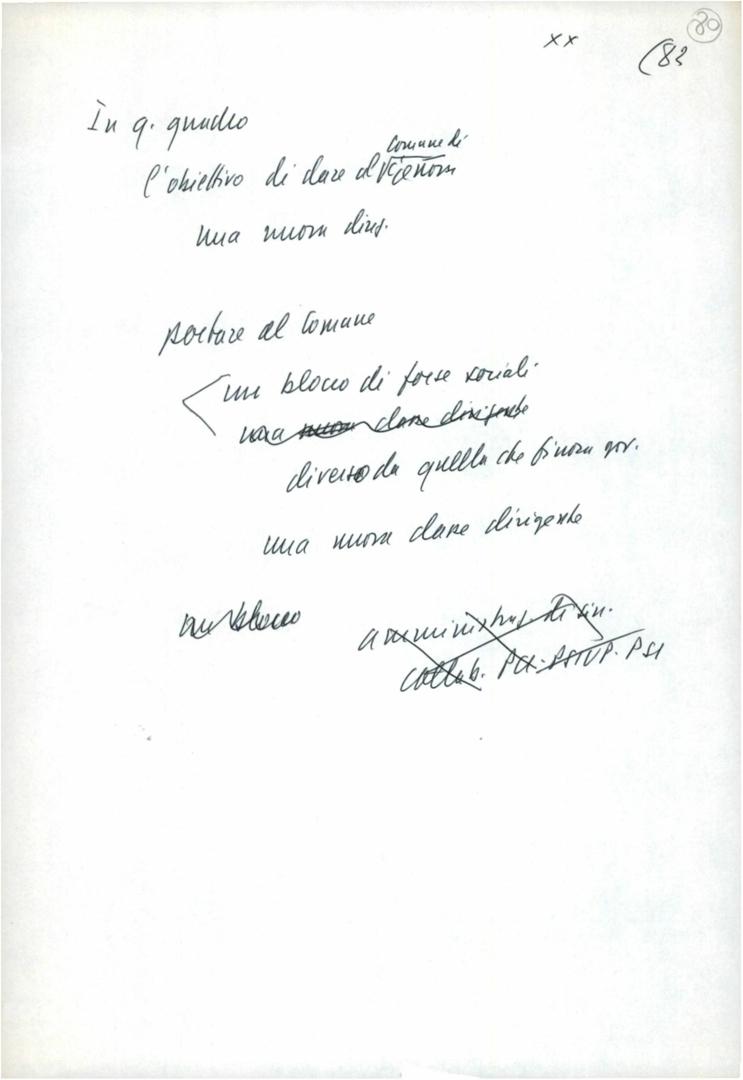 xx
20
(82
In q. quadro
l'obiettivo di dare al Comune di Genova
una nuova direz.
portare al Comune
un blocco di forze sociali
una nuova classe dirigente
diverso da quella che finora gov.
una nuova classe dirigente
un blocco
amministraz. di sin.
collab. PCI-PSIUP-PSI